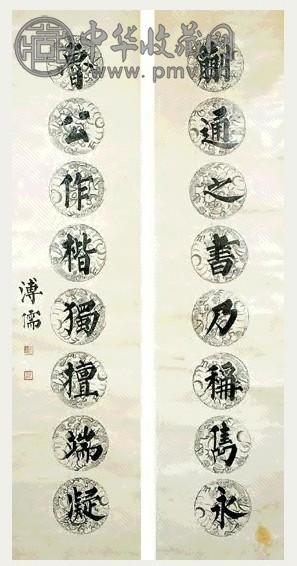 中华收藏网
蒯通之書乃稱雋永
魯公作楷獨擅端凝
溥儒